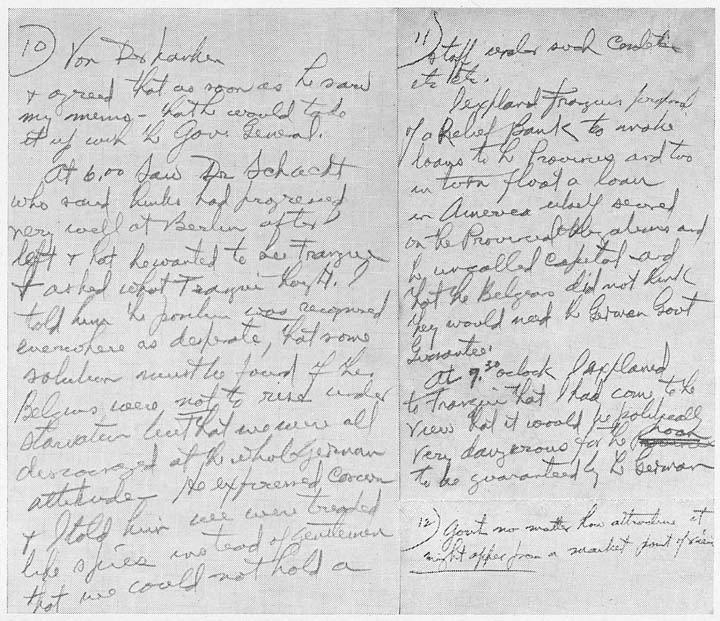 10) Von Der Lancken
+ agreed that as soon as he saw
my memo - that he would take
it up with the Gov. General.
At 6.00 Saw Dr Schacht
who said had progressed
very well at Berlin after I
left + that he wanted to see Franqui
+ asked what Franqui thought. I
told him the position was recognised
everywhere as desperate, that some
solution must be found if the
Belgians were not to rise under
starvation but that we were all
discouraged at the whole German
attitude. He expressed concern
+ I told him we were treated
like spies instead of gentlemen
that we could not hold a
11)
staff under such condition
etc etc.
I explained Franquis proposal
of a Relief Bank to make
loans to the Provinces and to
in turn float a loan
in America secured
on the Provincial obligations and
the uncalled capital and
that the Belgians did not think
they would need the German Govt
Guarantee.
At 9.30 oclock I explained
to Franqui that I had come to the
view that it would be politically
very dangerous for the
to be guaranteed by the German
12) Govt no matter how attractive it
might appear from a market point of view